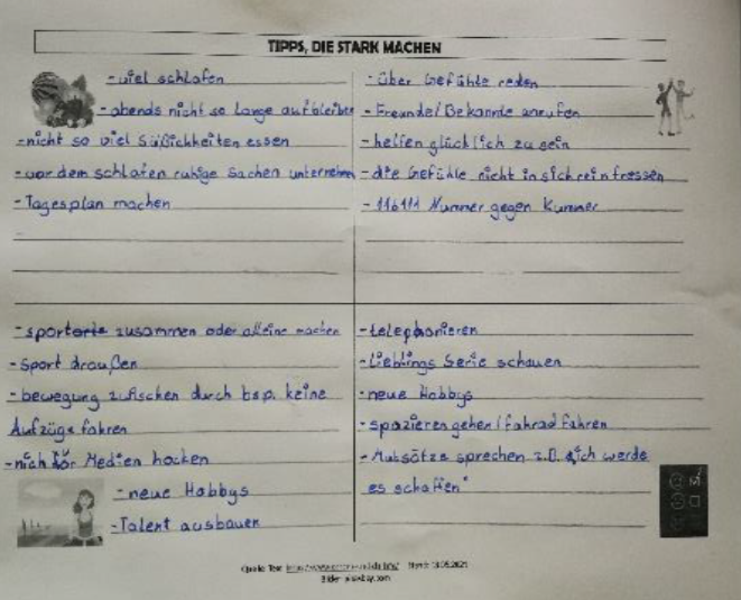 TIPPS, DIE STARK MACHEN
- viel schlafen
- abends nicht so lange aufbleiben
- nicht so viel Süßichkeiten essen
- vor dem schlafen ruhige Sachen unternehmen
- Tagesplan machen
- über Gefühle reden
- Freunde/Bekannte anrufen
- helfen glücklich zu sein
- die Gefühle nicht in sich reinfressen
- 116111 Nummer gegen Kummer
- sportarte zusammen oder alleine machen
- Sport draußen
- bewegung zwischen durch bsp. keine
Aufzüge fahren
- nich för Medien hocken
- neue Hobbys
- Talent ausbauen
- telephonieren
- Lieblings Serie schauen
- neue Hobbys
- spazieren gehen / fahrad fahren
- Mutsätze sprechen z.B. „ich werde
es schaffen"
Quelle: Text:
Stand: 13.05.2021
Bilder: pixabay.com